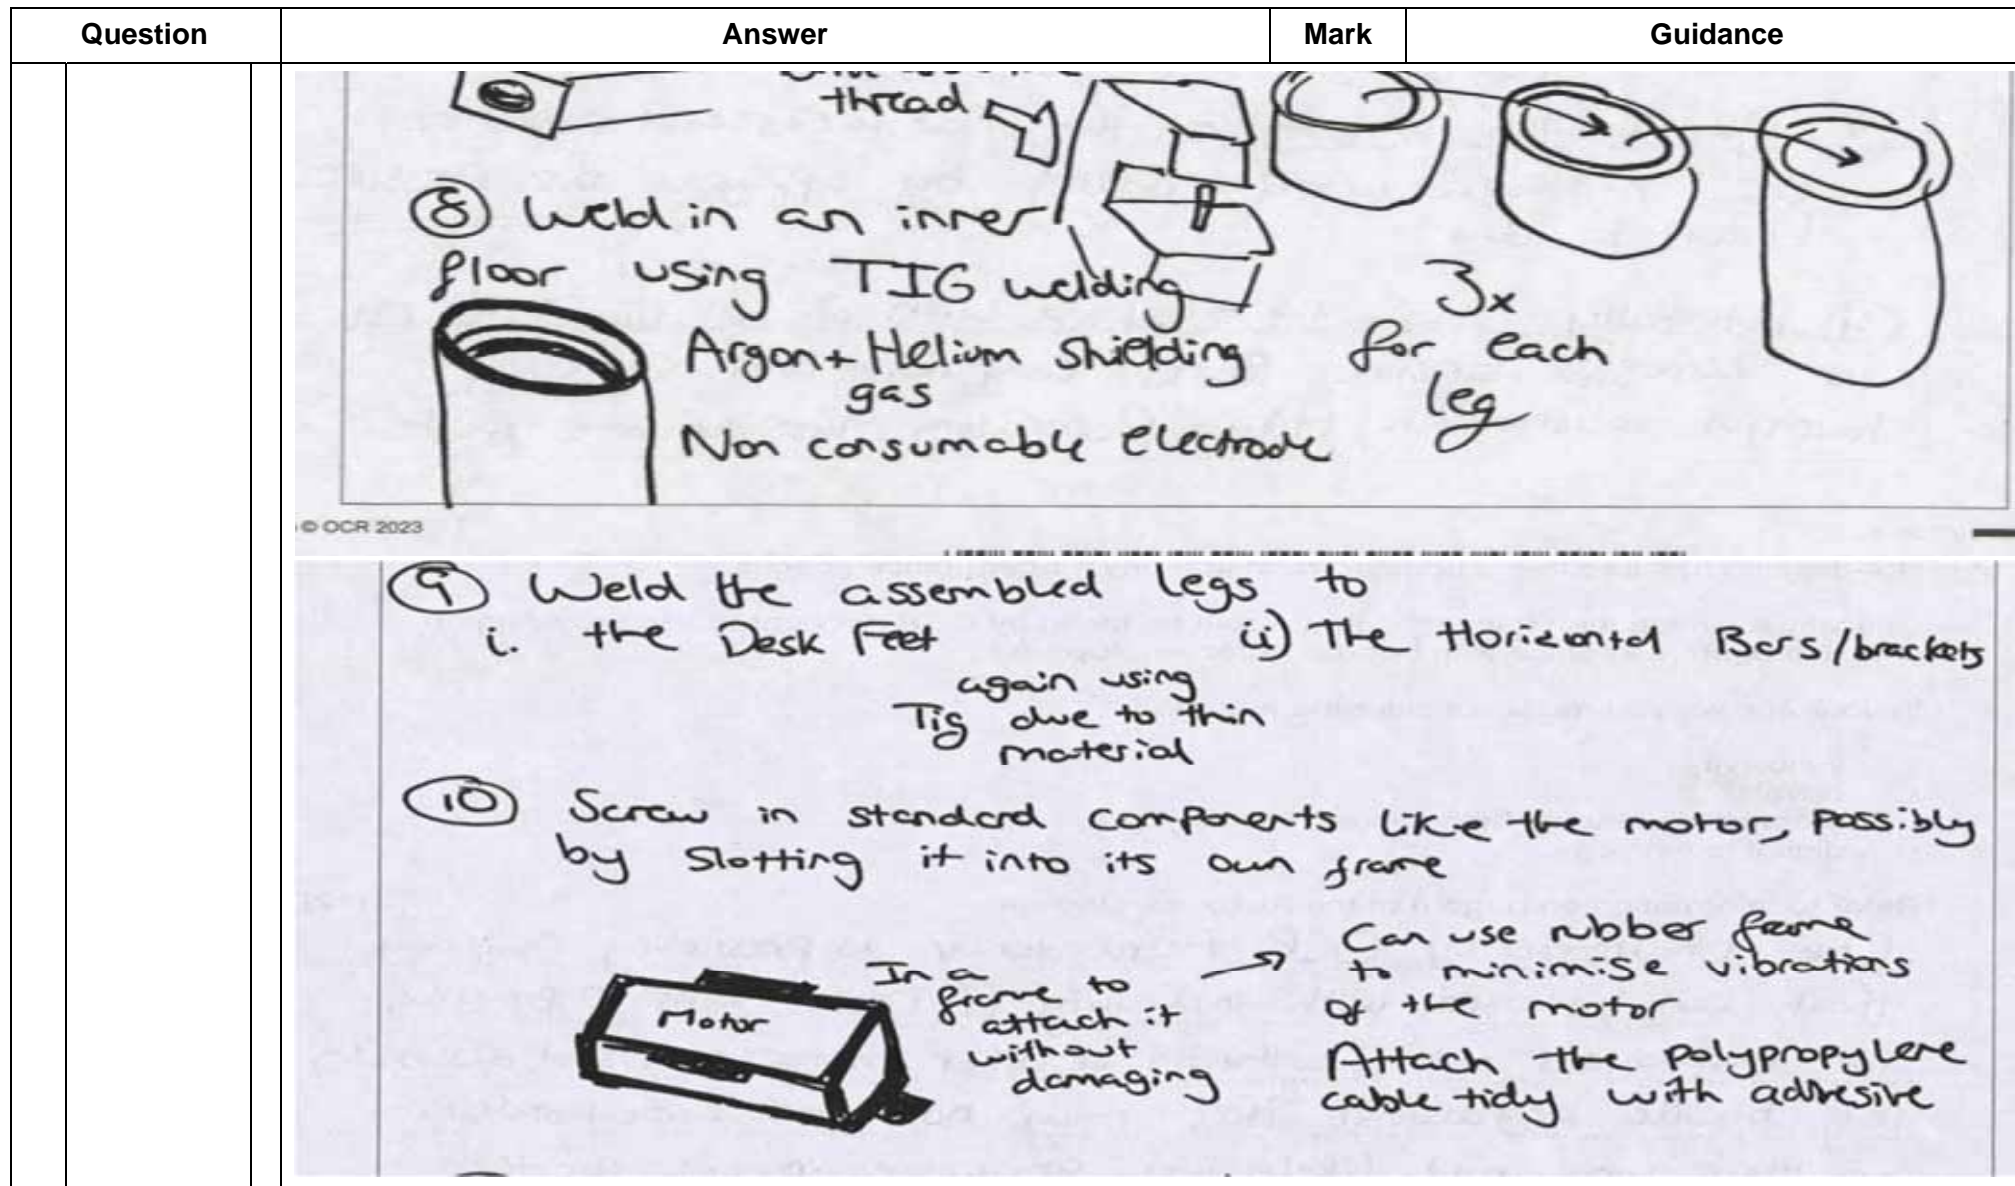 Question Answer Mark Guidance
thread
⑧ Weld in an inner
floor using TIG welding
Argon + Helium Shielding
gas
Non consumable electrode
3x
for each
leg
© OCR 2023
⑨ Weld the assembled legs to
i. the Desk Feet ii) The Horizontal Bars/brackets
again using
Tig due to thin
material
⑩ Screw in standard components like the motor, possibly
by slotting it into its own frame
Motor
In a
frame to
attach it
without
damaging
Can use rubber frame
to minimise vibrations
of the motor
Attach the polypropylene
cable tidy with adhesive